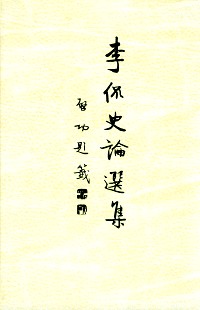 李侃史論選集
啓功題籤